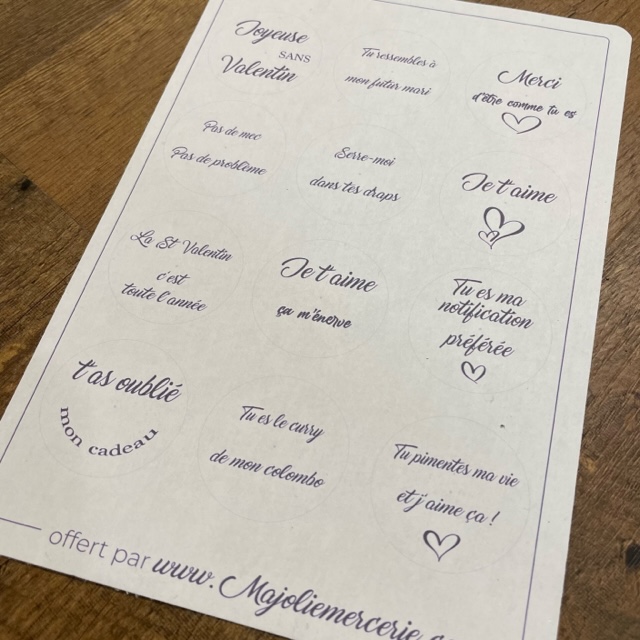 Joyeuse
SANS
Valentin
Tu ressembles à
mon futur mari
Merci
d'être comme tu es
Pas de mec
Pas de problème
Serre-moi
dans tes draps
Je t'aime
La St Valentin
c'est
toute l'année
Je t'aime
ça m'énerve
Tu es ma
notification
préférée
t'as oublié
mon cadeau
Tu es le curry
de mon colombo
Tu pimentes ma vie
et j'aime ça !
offert par www.Majoliemercerie.